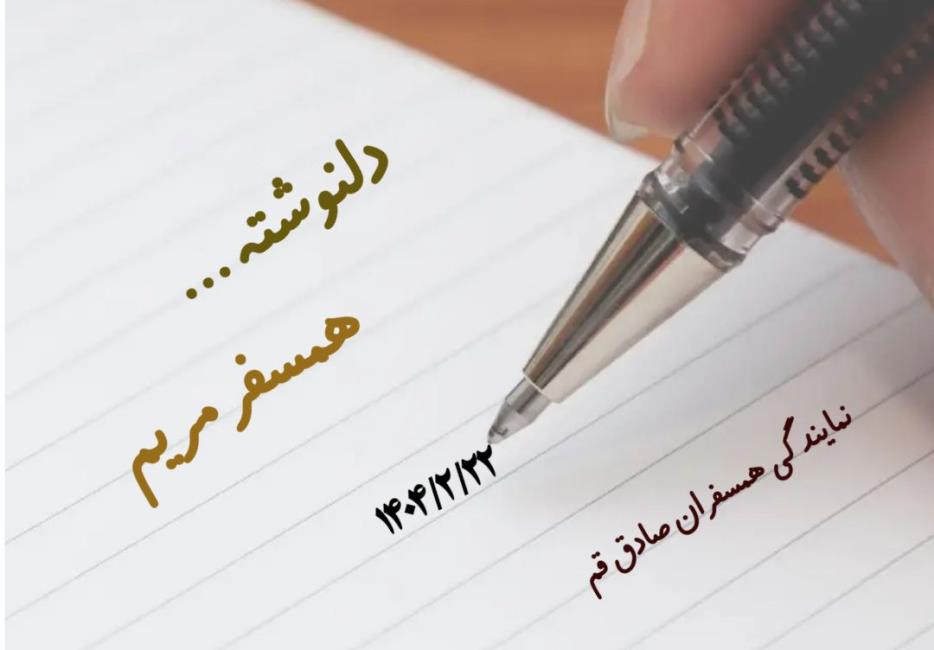 دلنوشته...
همسفر مریم
۱۴۰۴/۲/۲۲
نمایندگی همسفران صادق قم